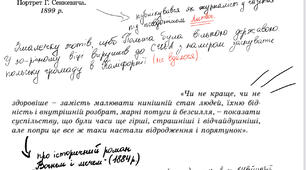 Портрет Г. Сенкевича.
1899 р.
публікувався як журналіст у газетах
під псевдонімом Литвос.
Змалечку хотів, щоб Польща була вільною державою.
У 30-річному віці вирушив до США, з наміром заснувати
польську громаду в Каліфорнії (не вдалося)
«Чи не краще, чи не
здоровіше – замість малювати нинішній стан людей, їхню бід-
ність і внутрішній розбрат, марні потуги й безсилля, – показати
суспільству, що були часи ще гірші, страшніші і відчайдушніші,
але попри це все ж таки настали відродження і порятунок».
про історичний роман
Вогнем і мечем (1884р)